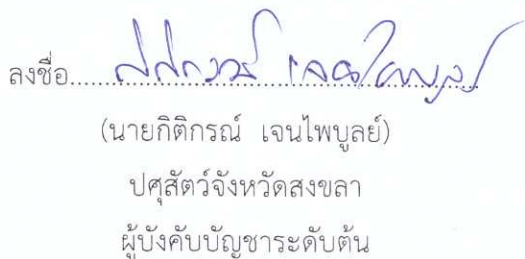 ลงชื่อ
(นายกิติกรณ์ เจนไพบูลย์)
ปศุสัตว์จังหวัดสงขลา
ผู้บังคับบัญชาระดับต้น